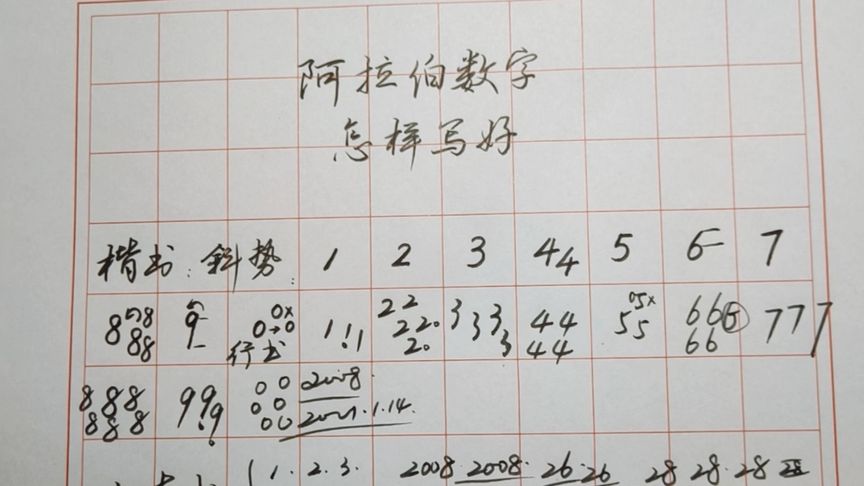 阿拉伯数字
怎样写好
楷书:斜势: 1 2 3 44 5 6 7
8 8 8 88 9 0x 0→0 1 1 1 22 22. 2. 3 3 3 3 44 44 05x 55 666 6 66 7 7 7
行书
888 888 999 00 00 00 2008.
2021.1.14.
1 1. 2. 3. 2008 2008. 26.26 28 28.28